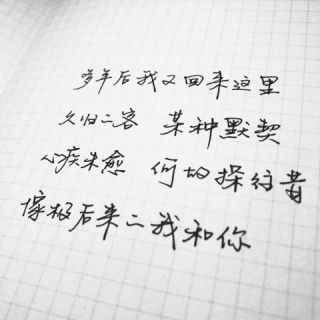 多年后我又回来这里
久归之客 某种默契
心疾未愈 何 探往昔
像极后来之我和你